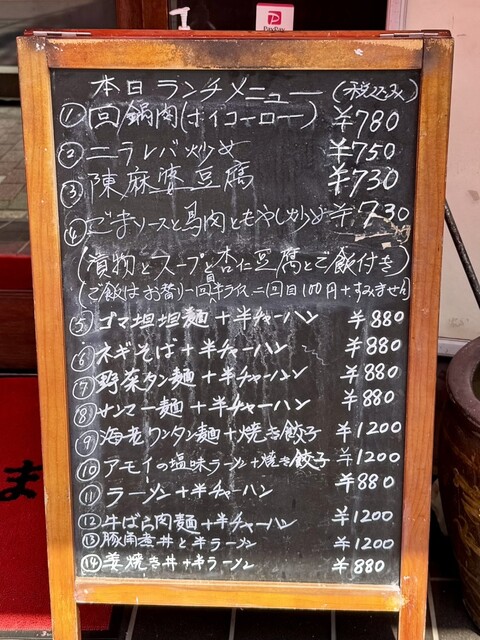 PayPay
本日ランチメニュー (税込み)
① 回鍋肉(ホイコーロー) ¥780
② ニラレバ炒め ¥750
③ 陳麻婆豆腐 ¥730
④ ごまソースと鳥肉ともやし炒め ¥730
(漬物とスープと杏仁豆腐とご飯付き)
(ご飯はお替り一回半ライス 二回目100円+すみません)
⑤ ゴマ坦坦麺+半チャーハン ¥880
⑥ ネギそば+半チャーハン ¥880
⑦ 野菜タン麺+半チャーハン ¥880
⑧ サンマー麺+半チャーハン ¥880
⑨ 海老ワンタン麺+焼き餃子 ¥1200
⑩ アモイの塩味ラーメン+焼き餃子 ¥1200
⑪ ラーメン+半チャーハン ¥880
⑫ 牛ばら肉麺+半チャーハン ¥1200
⑬ 豚角煮丼と半ラーメン ¥1200
⑭ 姜焼き丼+半ラーメン ¥880
ま